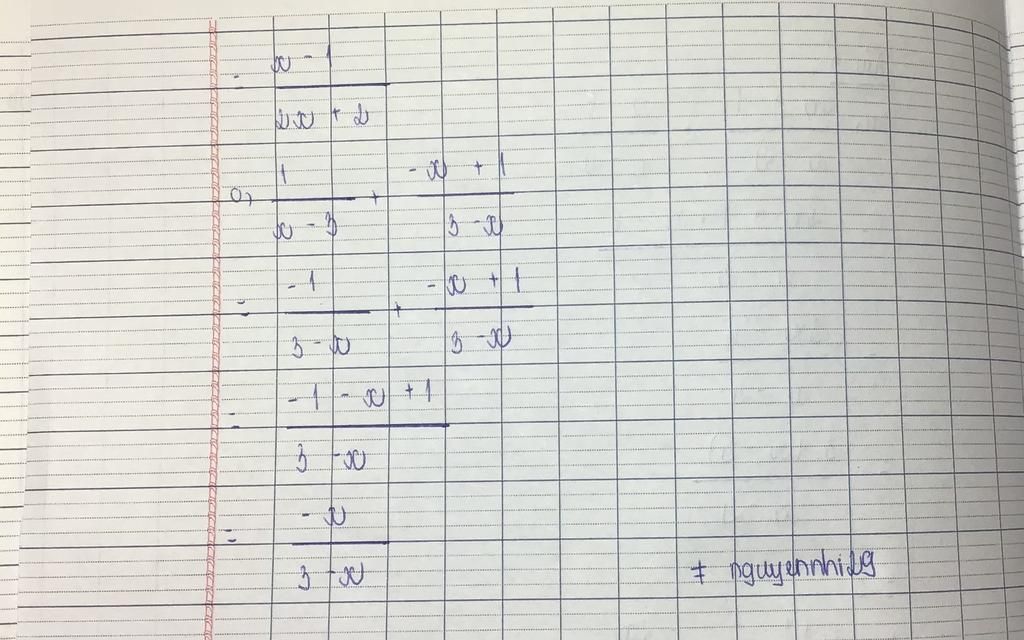 = (x - 1)/(2x + 2)
c, 1/(x - 3) + (-x + 1)/(3 - x)
= -1/(3 - x) + (-x + 1)/(3 - x)
= (-1 - x + 1)/(3 - x)
= -x/(3 - x)
# nguyennhi29